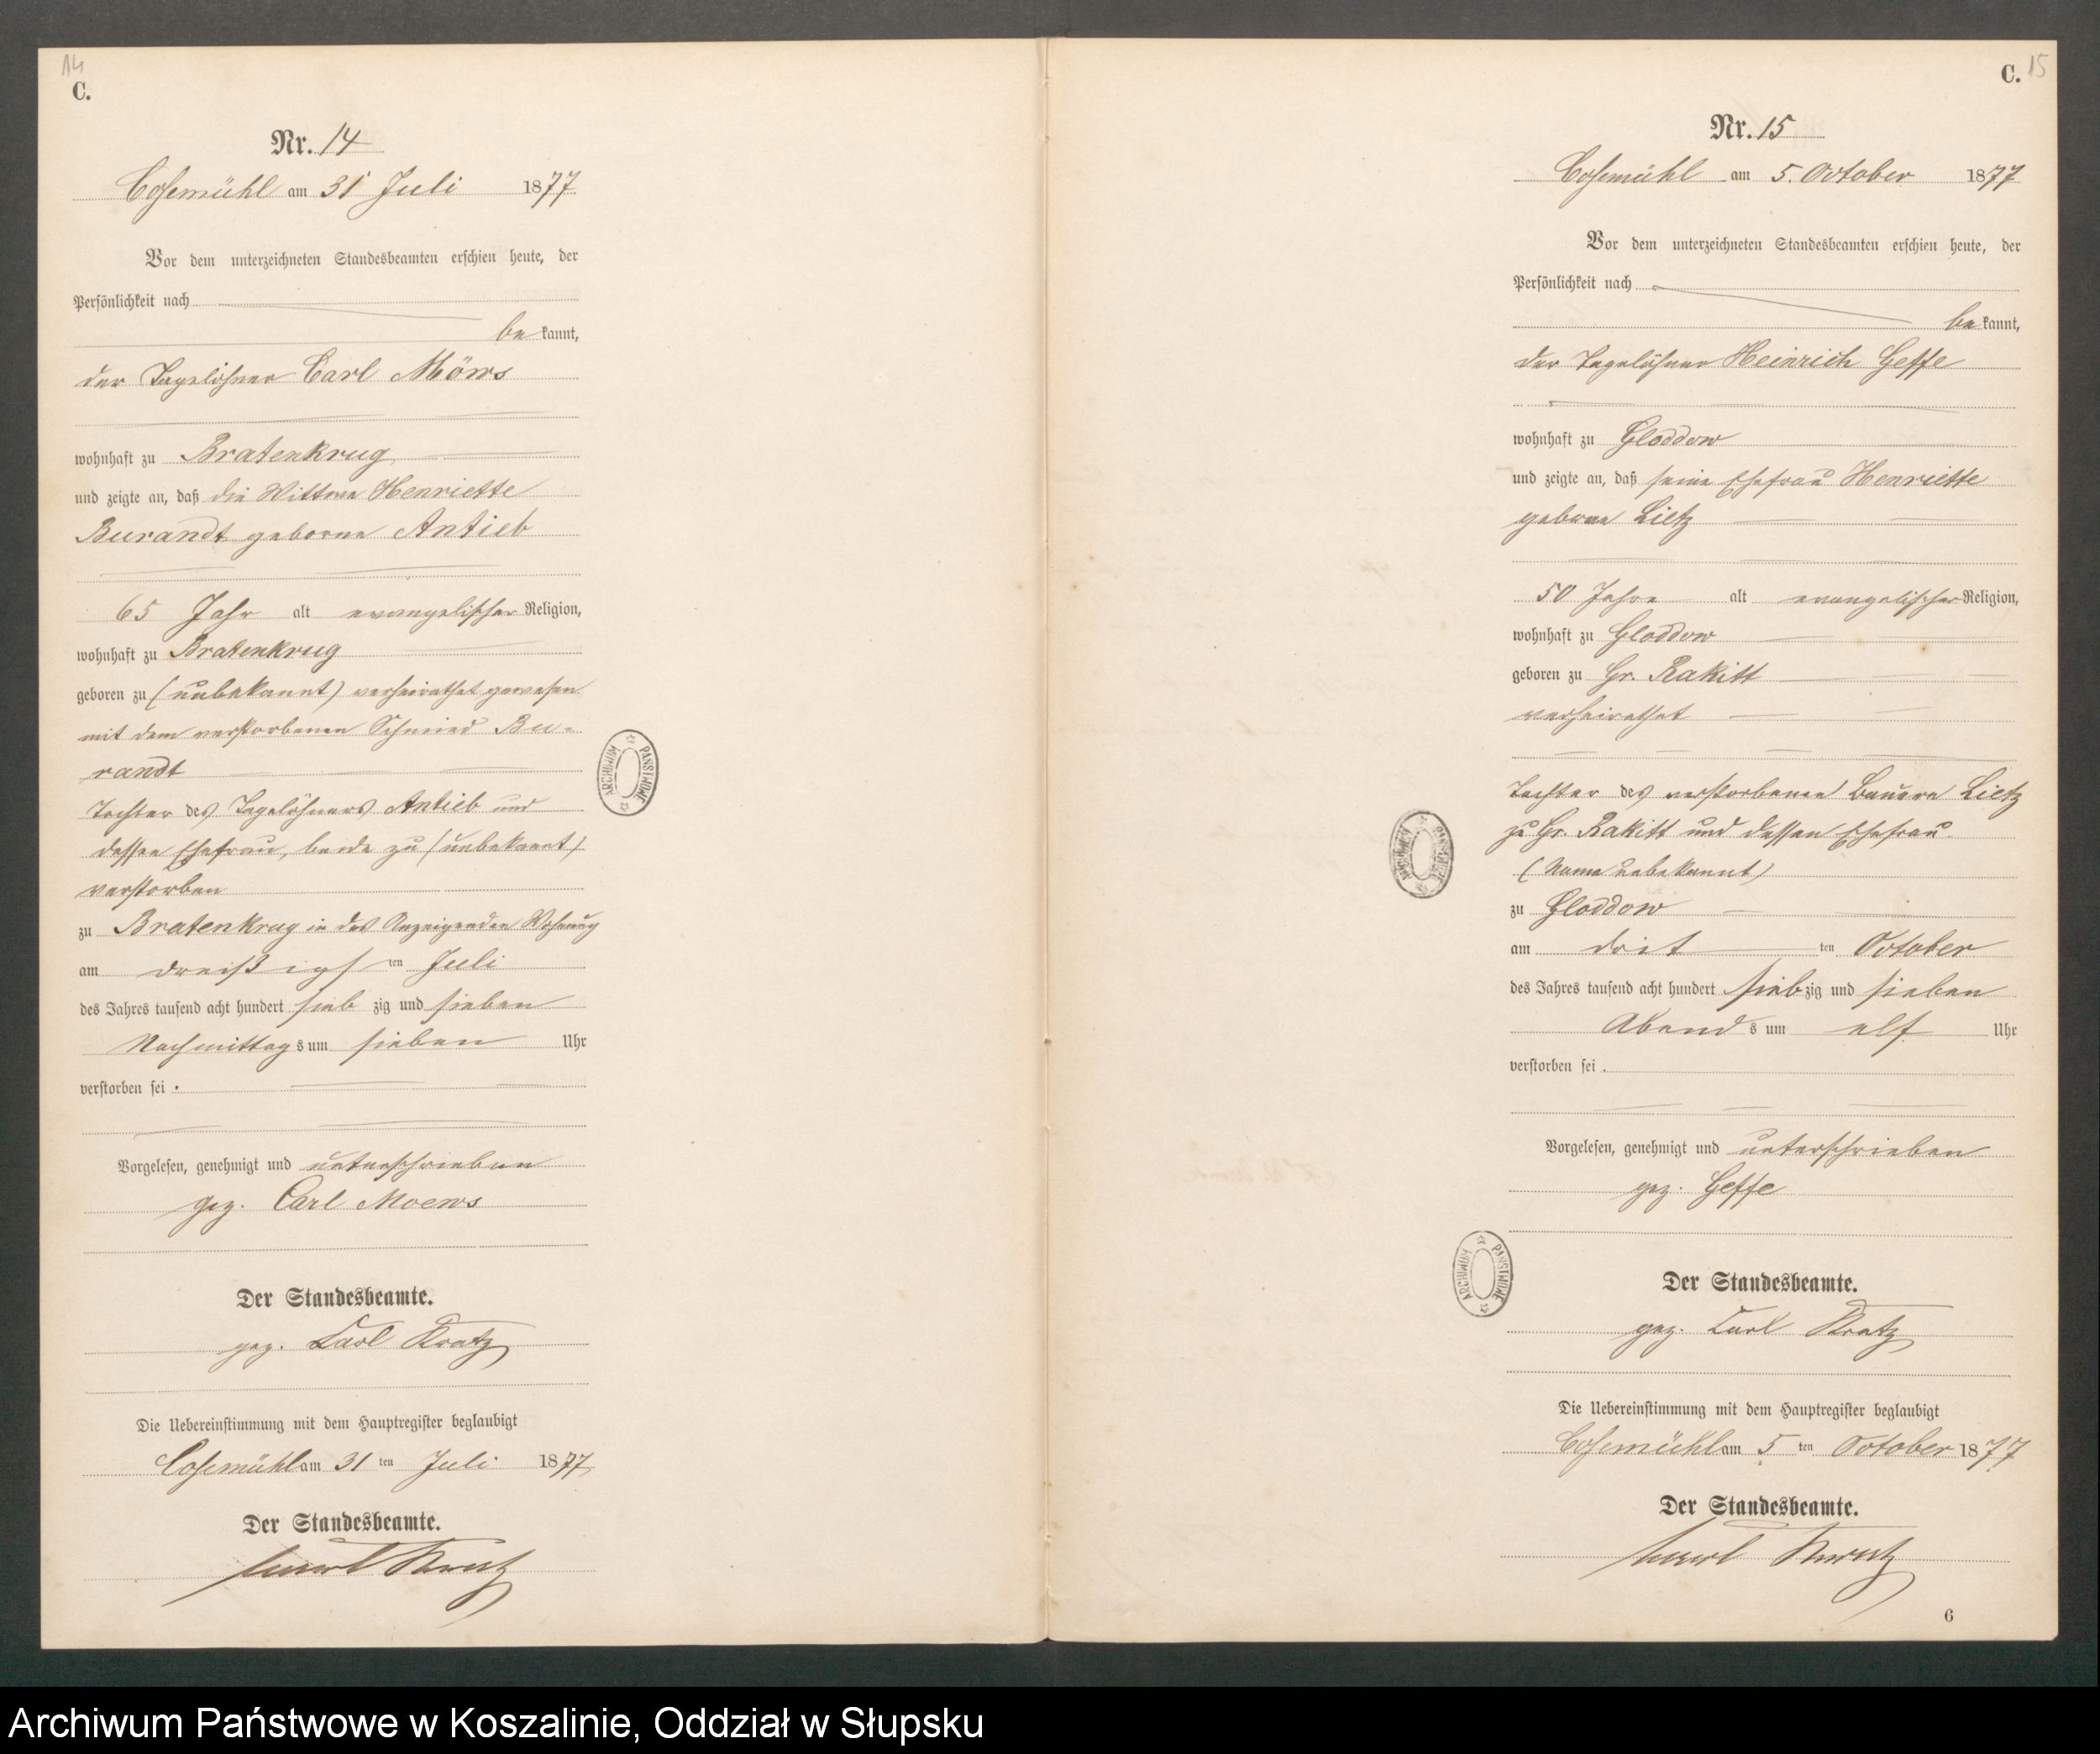 14
C.
Nr. 14
Cosemühl am 31 Juli 1877
Vor dem unterzeichneten Standesbeamten erschien heute, der
Persönlichkeit nach
be kannt,
der Tagelöhner Carl Möws
wohnhaft zu Bratenkrug
und zeigte an, daß die Wittwe Henriette
Burandt geborne Antieb
65 Jahr alt evangelischer Religion,
wohnhaft zu Bratenkrug
geboren zu (unbekannt) verheirathet gewesen
mit dem verstorbenen Schmied Bu-
randt
Tochter des Tagelöhners Antieb und
dessen Ehefrau, beide zu (unbekannt)
verstorben
zu Bratenkrug in des Anzeigenden Wohnung
am dreißigs ten Juli
des Jahres tausend acht hundert sieb zig und sieben
Nachmittag s um sieben Uhr
verstorben sei.
Vorgelesen, genehmigt und unterschrieben
gez. Carl Moews
Der Standesbeamte.
gez. Carl Kratz
Die Uebereinstimmung mit dem Hauptregister beglaubigt
Cosemühl am 31 ten Juli 1877
Der Standesbeamte.
Carl Kratz
ARCHIWUM PAŃSTWOWE
C. 15
Nr. 15
Cosemühl am 5. October 1877
Vor dem unterzeichneten Standesbeamten erschien heute, der
Persönlichkeit nach
be kannt,
der Tagelöhner Heinrich Geffe
wohnhaft zu Gloddow
und zeigte an, daß seine Ehefrau Henriette
geborne Lietz
50 Jahre alt evangelischer Religion,
wohnhaft zu Gloddow
geboren zu Gr. Rakitt
verheirathet
Tochter des verstorbenen Bauern Lietz
zu Gr. Rakitt und dessen Ehefrau
(Name unbekannt)
zu Gloddow
am drit ten October
des Jahres tausend acht hundert sieb zig und sieben
Abend s um elf Uhr
verstorben sei.
Vorgelesen, genehmigt und unterschrieben
gez. Geffe
Der Standesbeamte.
gez. Carl Kratz
Die Uebereinstimmung mit dem Hauptregister beglaubigt
Cosemühl am 5 ten October 1877
Der Standesbeamte.
Carl Kratz
6
ARCHIWUM PAŃSTWOWE
ARCHIWUM PAŃSTWOWE
Archiwum Państwowe w Koszalinie, Oddział w Słupsku